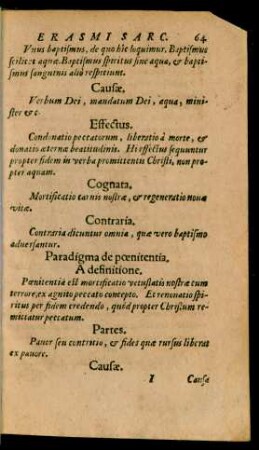 ERASMI SARC. 64
Vnus baptismus, de quo hîc loquimur. Baptismus
scilicet aquæ. Baptismus spiritus sine aqua, & bapti-
smus sanguinis aliò respiciunt.
Causæ.
Verbum Dei, mandatum Dei, aqua, mini-
ster &c.
Effectus.
Condonatio peccatorum, liberatio à morte, &
donatio æternæ beatitudinis. Hi effectus sequuntur
propter fidem in verba promittentis Christi, non pro-
pter aquam.
Cognata.
Mortificatio carnis nostræ, & regeneratio nouæ
vitæ.
Contraria.
Contraria dicuntur omnia, quæ vero baptismo
aduersantur.
Paradigma de pœnitentia.
A definitione.
Pœnitentia est mortificatio vetustatis nostræ cum
terrore, ex agnito peccato concepto. Et renouatio spi-
ritus per fidem credendo, quòd propter Christum re-
mittatur peccatum.
Partes.
Pauor seu contritio, & fides quæ rursus liberat
ex pauore.
Causæ.
I Causæ